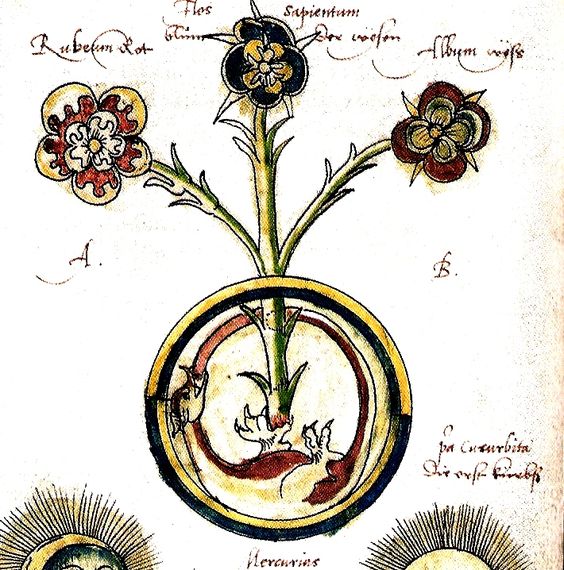 Flos Sapientum
Rubeum Rot blům der weisen Album weiss
A.
B.
pa Cucurbita
Die erst kürbs
Mercurius